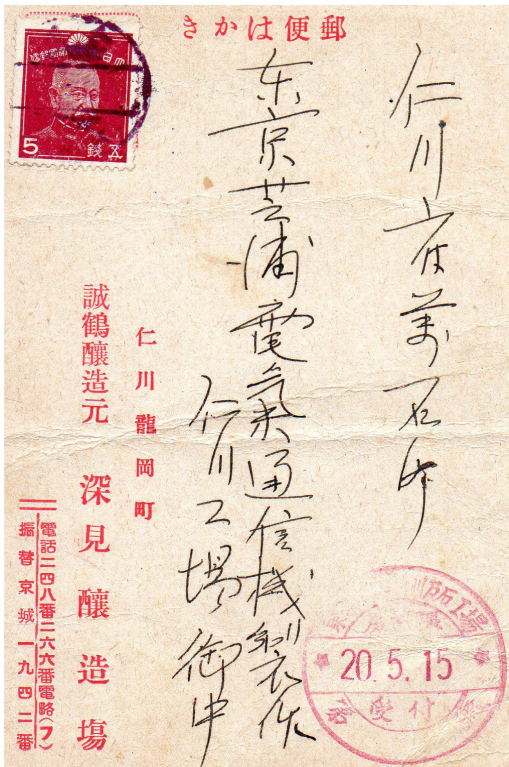 郵便はかき
仁川府萬石町
東京芝浦電氣通信機製作
仁川工場御中
仁川龍岡町
誠鶴釀造元 深見釀造場
電話二四八番二六六番電略(フ)
振替京城一九四二番
5 錢五
20.5.15
受付